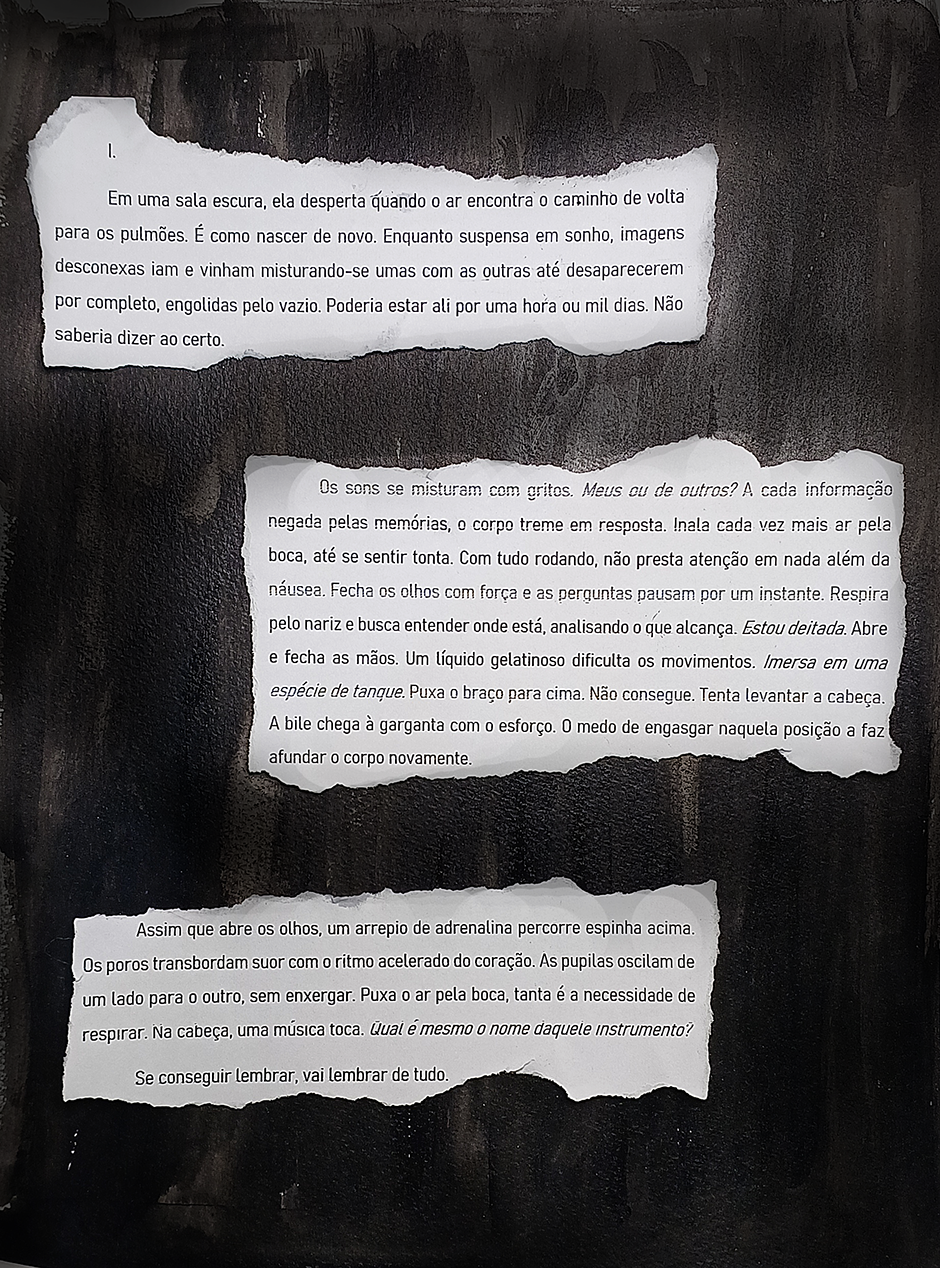 I.
Em uma sala escura, ela desperta quando o ar encontra o caminho de volta
para os pulmões. É como nascer de novo. Enquanto suspensa em sonho, imagens
desconexas iam e vinham misturando-se umas com as outras até desaparecerem
por completo, engolidas pelo vazio. Poderia estar ali por uma hora ou mil dias. Não
saberia dizer ao certo.
Os sons se misturam com gritos. Meus ou de outros? A cada informação
negada pelas memórias, o corpo treme em resposta. Inala cada vez mais ar pela
boca, até se sentir tonta. Com tudo rodando, não presta atenção em nada além da
náusea. Fecha os olhos com força e as perguntas pausam por um instante. Respira
pelo nariz e busca entender onde está, analisando o que alcança. Estou deitada. Abre
e fecha as mãos. Um líquido gelatinoso dificulta os movimentos. Imersa em uma
espécie de tanque. Puxa o braço para cima. Não consegue. Tenta levantar a cabeça.
A bile chega à garganta com o esforço. O medo de engasgar naquela posição a faz
afundar o corpo novamente.
Assim que abre os olhos, um arrepio de adrenalina percorre espinha acima.
Os poros transbordam suor com o ritmo acelerado do coração. As pupilas oscilam de
um lado para o outro, sem enxergar. Puxa o ar pela boca, tanta é a necessidade de
respirar. Na cabeça, uma música toca. Qual é mesmo o nome daquele instrumento?
Se conseguir lembrar, vai lembrar de tudo.